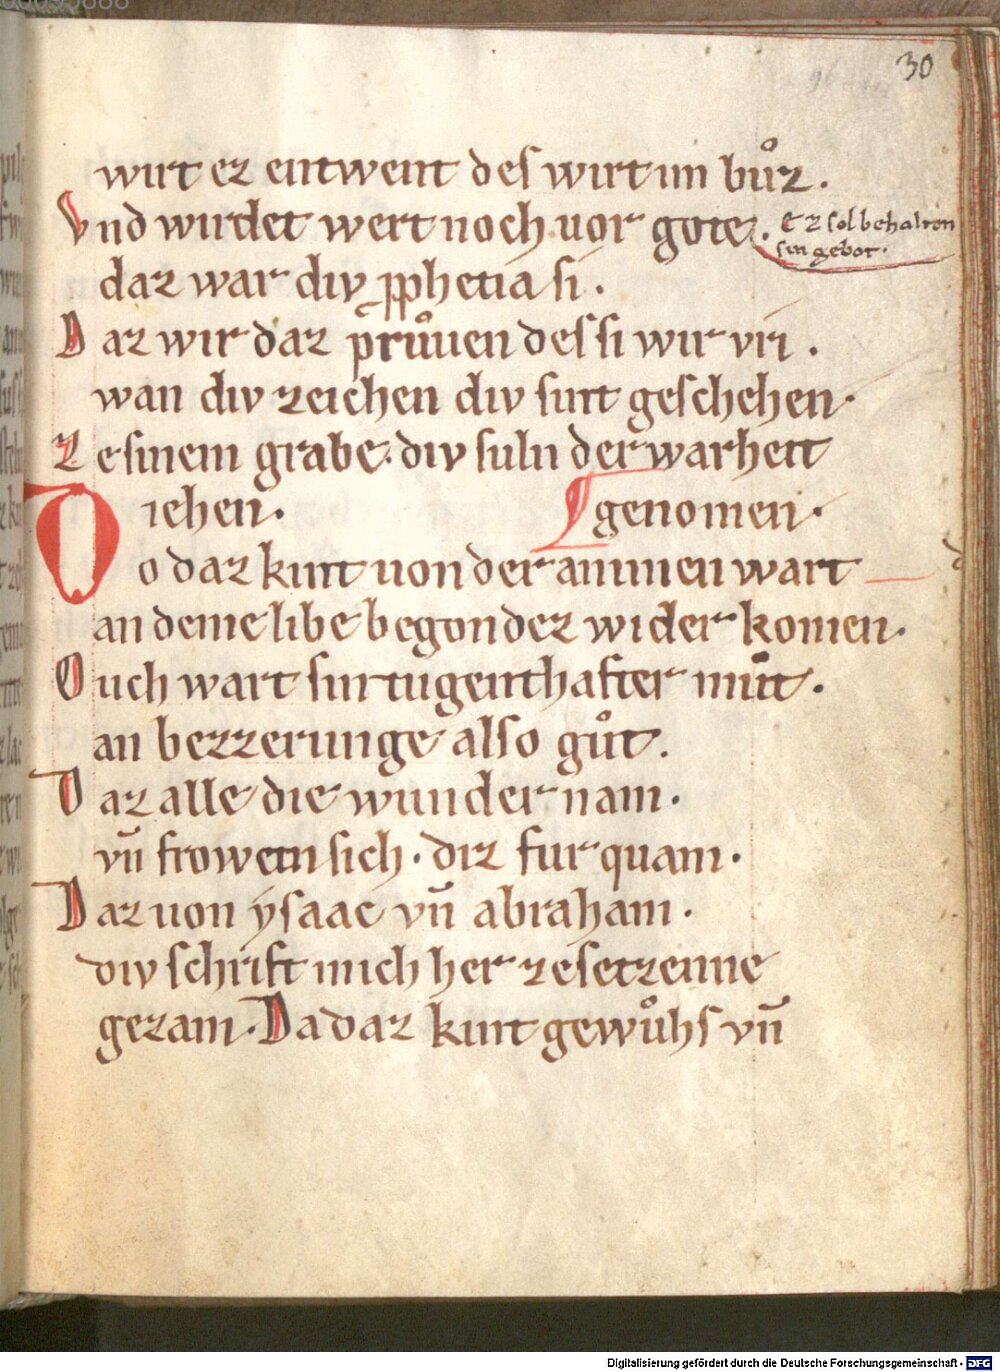 30
wirt ez entwent des wirt im bůz.
Vnd wirdet wert noch uor gote. Ez sol behalten
sin gebot.
daz war div pphetia si.
Daz wir daz průuen des si wir vri.
wan div zeichen div sint geschehen.
Ze sinem grabe. div suln der warheit
iehen. genomen.
Do daz kint uon der ammen wart
an deme libe begond ez wider komen.
Ouch wart sin tugenthafter můt.
an bezzerunge also gůt.
Daz alle die wunder nam.
vn̄ froweten sich. diz fur quam.
Daz uon ysaac vn̄ abraham.
div schrift mich her ze setzenne
gezam. Da daz kint gewůhs vn̄
Digitalisierung gefördert durch die Deutsche Forschungsgemeinschaft - DFG